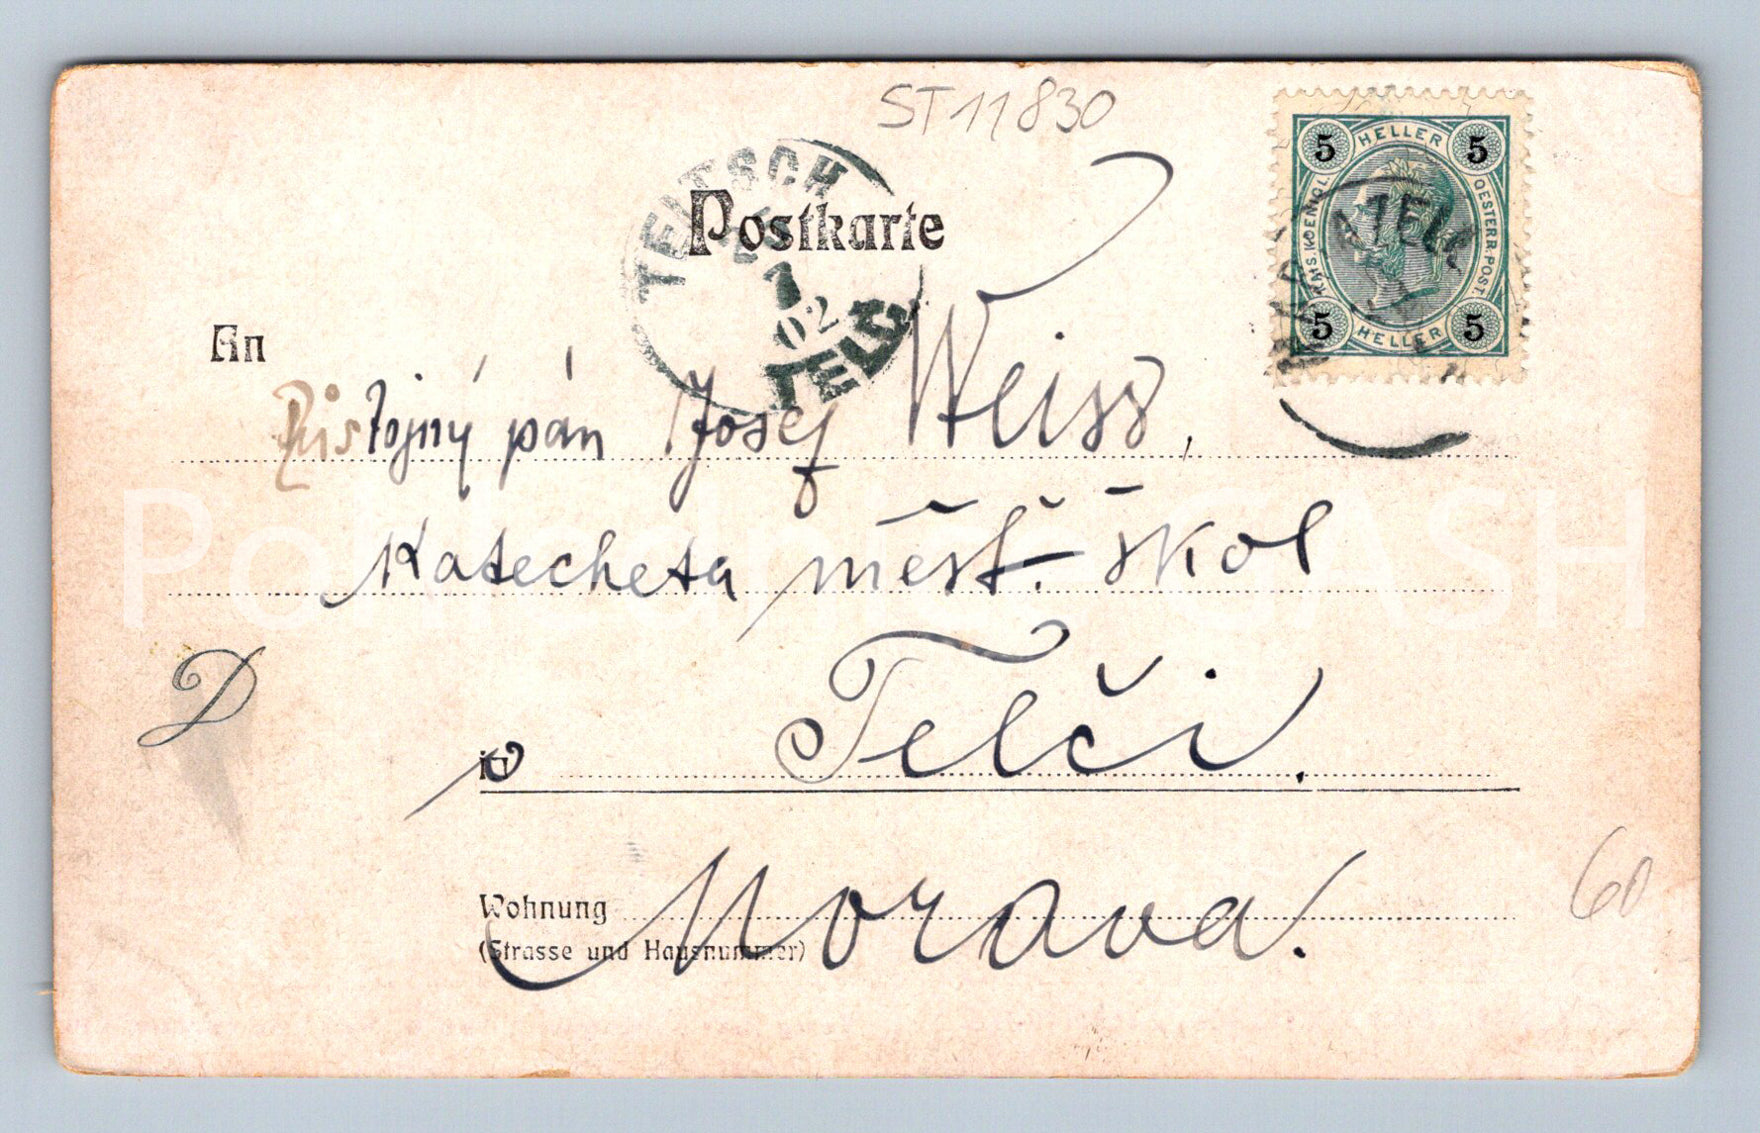 ST 11830
Postkarte
TELTSCH
1
02
TELČ
5 HELLER 5
KAIS. KOENIGL.
OESTERR. POST.
5 HELLER 5
An
Důstojný pán Josef Weiss,
Katecheta měšť. škol
D
in
v Telči.
Wohnung
Morava.
(Strasse und Hausnummer)
60